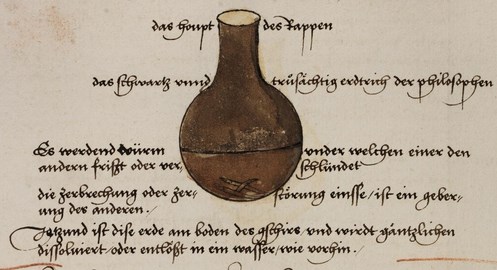 das houpt des Rappen
das schwartz vnnd trůsächtig erdtrich der philosophen
Es werdend würm vnder welchen einer den
andern frißt oder ver- schlündet
die zerbrechung oder zer- störung einsse / ist ein geber-
ung des anderen .
Jetzund ist dise erde am boden des gschirs vnd wirdt gäntzlichen
dissoluiert / oder entlößt in ein wasser / wie vorhin .